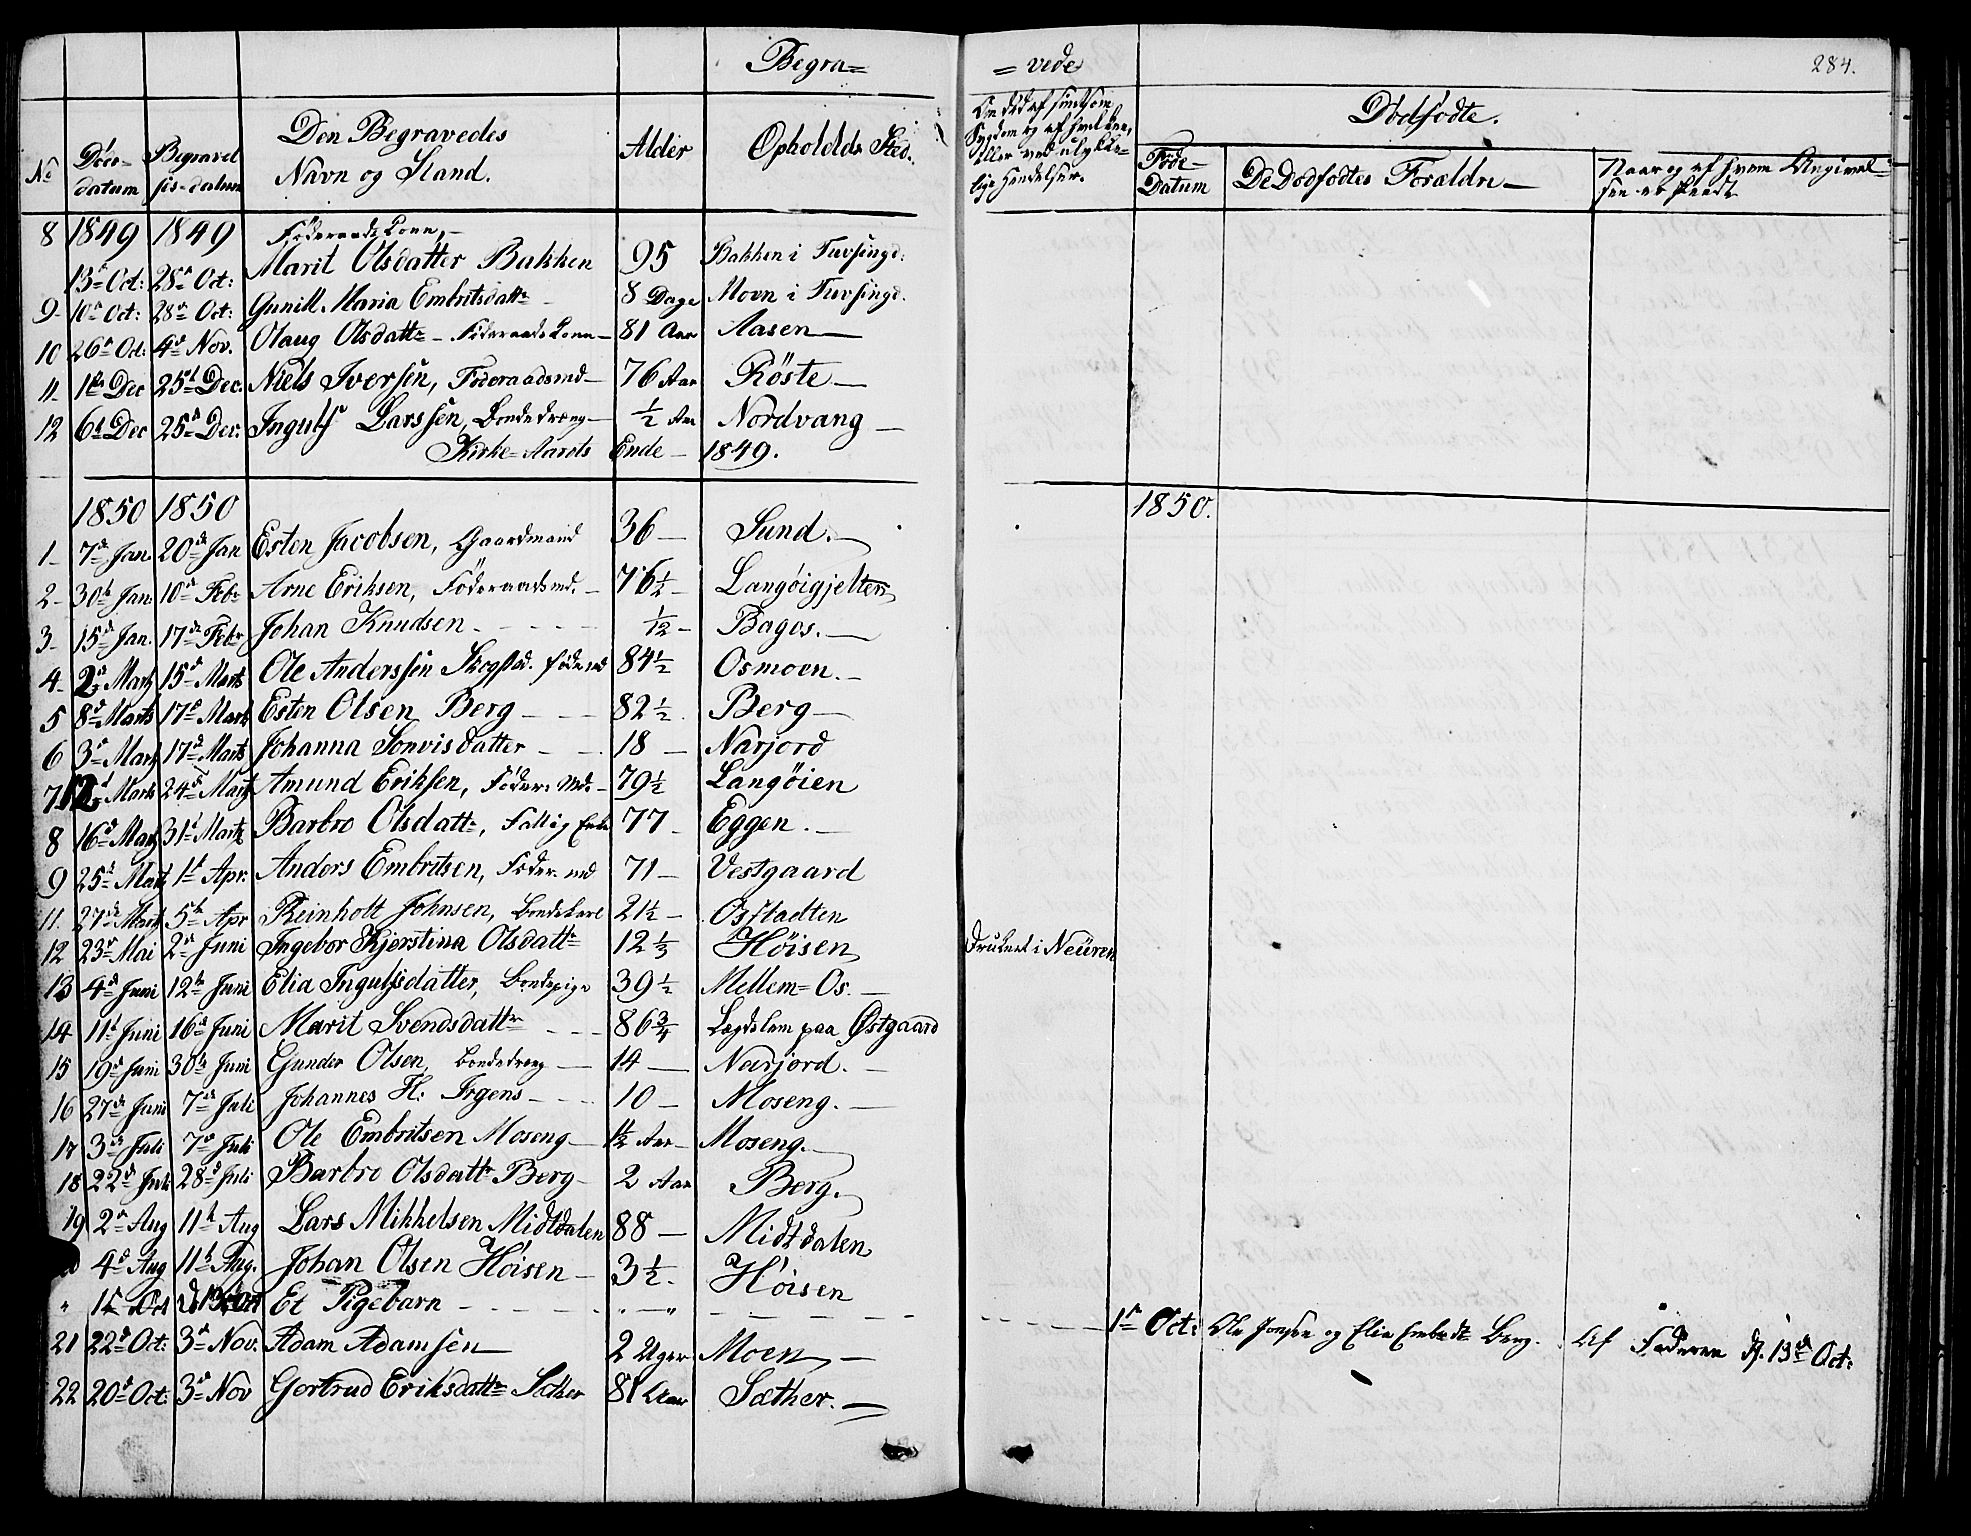 Begra= = vede 284.
Om død af smitsom
Sygdom og af hvilken,
eller ved ulykke-
lige Hendelser.
Dödfödte.
No Döds- datum Begravel sis-datum Den Begravedes Navn og Stand. Alder Opholdds Sted.
Föde- Datum De Dodfodtes Forældre Naar og af hvem Angivel- sen er skeedt
8 1849 1849 Föderaads Kone,
13d Oct: 28d Oct: Marit Olsdatter Bakken 95 Bakken i Tufsingd:
9 10d Oct: 28d Oct: Gunill Maria Embritsdattr 8 Dage Moen i Tufsingd.
10 26d Oct: 4d Nov. Olaug Olsdattr - Föderaads Kone - 81 Aar Aasen
11 1ste Dec 25d Dec: Niels Iversen, Föderaadsmd 76 Aar Röste
12 6d Dec 25d Dec: Ingulf Larssen, Bondedreng ½ Aar Nordvang
Kirke-Aarets Ende - 1849.
1850 1850 1850.
1 7d Jan. 20d Jan Esten Jacobsen, Gaardmand 36 Sund.
2 30d Jan: 10d Febr Arne Eriksen, Föderaadsmd. 76½ Langöigjelten
3 15d Jan. 17d Febr Johan Knudsen 1/12 Bagos.
4 2d Marts 15d Marts Ole Anderssen Skogstad. föder md 84½ Osmoen.
5 8d Marts 17d Marts Esten Olsen Berg 82½ Berg
6 3d Marts 17d Marts Johanna Sonvisdatter 18 Narjord
7 12d Marts 24d Marts Amund Eriksen, Föder: Md. 79½ Langöien
8 16d Marts 31d Marts Barbro Olsdattr, Fattig Enke 77 Eggen.
9 25d Marts 1d Apr: Anders Embritsen, Föder. md 71 Vestgaard
11. 27d Marts 5d Apr Reinholt Johnsen, Bondekarl 21½ Osstadten
12 23d Mai 2d Juni Ingebor Kjerstina Olsdattr 12⅓ Höisen Druknet i Neüren
13 4d Juni 12te Juni Elia Ingulfsdatter, Bondepige 39½ Mellem=Os.
14 11te Juni 16d Juni Marit Svendsdattr 86¾ Lægdslem paa Østgaard
15 19d Juni 30d Juni Gunder Olsen, Bondedreng 14 Narjord.
16 27d Juni 7d Juli Johannes H: Irgens 10 Moseng.
17 3d Juli 7d Juli Ole Embritsen Moseng 1½ Aar Moseng.
18 22d Juli 28d Juli Barbro Olsdattr Berg 2 Aar Berg.
19 2d Aug 11te Aug Lars Mikkelsen Midtdalen 88 Midtdalen
4d Aug 11te Aug. Johan Olsen Höisen 3½ Höisen
" 1ste Oct Et Pigebarn " " 1ste Oct: Ole Jonsen og Elie Embrdtr Berg. Af Faderen d. 13d Oct:
21 22d Oct: 3d Nov. Adam Adamsen 2 Uger Moen
22 20d Oct: 3d Nov Gertrud Eriksdattr Sæther 81 Aar Sæther.